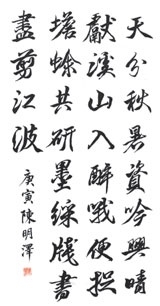 天分秋暑資吟興晴
獻溪山入醉哦便捉
蟾蜍共研墨綵牋書
盡剪江波
庚寅陳明澤